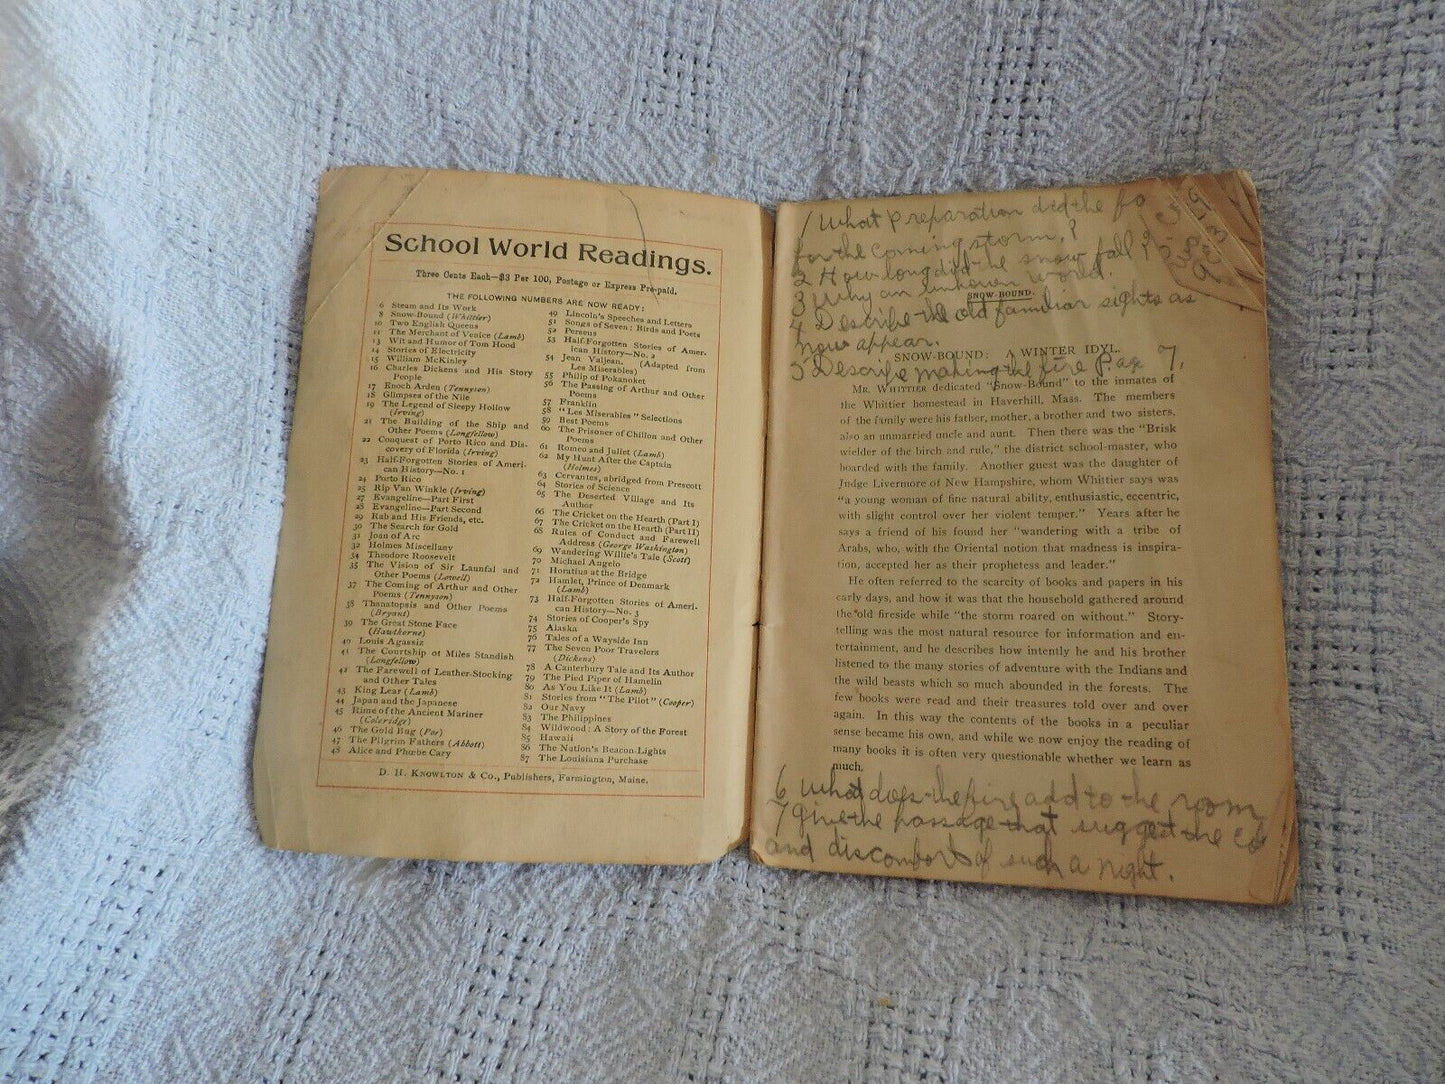 School World Readings.
Three Cents Each—$3 Per 100, Postage or Express Pre-paid.
THE FOLLOWING NUMBERS ARE NOW READY:
6 Steam and Its Work
8 Snow-Bound (Whittier)
10 Two English Queens
11 The Merchant of Venice (Lamb)
13 Wit and Humor of Tom Hood
14 Stories of Electricity
15 William McKinley
16 Charles Dickens and His Story
People
17 Enoch Arden (Tennyson)
18 Glimpses of the Nile
19 The Legend of Sleepy Hollow
(Irving)
21 The Building of the Ship and
Other Poems (Longfellow)
22 Conquest of Porto Rico and Dis-
covery of Florida (Irving)
23 Half-Forgotten Stories of Ameri-
can History—No. 1
24 Porto Rico
25 Rip Van Winkle (Irving)
27 Evangeline—Part First
28 Evangeline—Part Second
29 Rab and His Friends, etc.
30 The Search for Gold
31 Joan of Arc
32 Holmes Miscellany
34 Theodore Roosevelt
35 The Vision of Sir Launfal and
Other Poems (Lowell)
37 The Coming of Arthur and Other
Poems (Tennyson)
38 Thanatopsis and Other Poems
(Bryant)
39 The Great Stone Face
(Hawthorne)
40 Louis Agassiz
41 The Courtship of Miles Standish
(Longfellow)
42 The Farewell of Leather-Stocking
and Other Tales
43 King Lear (Lamb)
44 Japan and the Japanese
45 Rime of the Ancient Mariner
(Coleridge)
46 The Gold Bug (Poe)
47 The Pilgrim Fathers (Abbott)
48 Alice and Phœbe Cary
49 Lincoln's Speeches and Letters
51 Songs of Seven: Birds and Poets
52 Perseus
53 Half-Forgotten Stories of Amer-
ican History—No. 2
54 Jean Valjean. (Adapted from
Les Miserables)
55 Philip of Pokanoket
56 The Passing of Arthur and Other
Poems
57 Franklin
58 "Les Miserables" Selections
59 Best Poems
60 The Prisoner of Chillon and Other
Poems
61 Romeo and Juliet (Lamb)
62 My Hunt After the Captain
(Holmes)
63 Cervantes, abridged from Prescott
64 Stories of Science
65 The Deserted Village and Its
Author
66 The Cricket on the Hearth (Part I)
67 The Cricket on the Hearth (Part II)
68 Rules of Conduct and Farewell
Address (George Washington)
69 Wandering Willie's Tale (Scott)
70 Michael Angelo
71 Horatius at the Bridge
72 Hamlet, Prince of Denmark
(Lamb)
73 Half-Forgotten Stories of Ameri-
can History—No. 3
74 Stories of Cooper's Spy
75 Alaska
76 Tales of a Wayside Inn
77 The Seven Poor Travelers
(Dickens)
78 A Canterbury Tale and Its Author
79 The Pied Piper of Hamelin
80 As You Like It (Lamb)
81 Stories from "The Pilot" (Cooper)
82 Our Navy
83 The Philippines
84 Wildwood: A Story of the Forest
85 Hawaii
86 The Nation's Beacon-Lights
87 The Louisiana Purchase
D. H. KNOWLTON & CO., Publishers, Farmington, Maine.
1 What preparation did the fo
for the coming storm,?
2 How long did the snow fall?
3 Why an unknown world.
SNOW-BOUND.
4 Describe the old familiar sights as
now appear.
SNOW-BOUND: A WINTER IDYL.
5 Describe making the fire Page 7,
MR. WHITTIER dedicated "Snow-Bound" to the inmates of
the Whittier homestead in Haverhill, Mass. The members
of the family were his father, mother, a brother and two sisters,
also an unmarried uncle and aunt. Then there was the "Brisk
wielder of the birch and rule," the district school-master, who
boarded with the family. Another guest was the daughter of
Judge Livermore of New Hampshire, whom Whittier says was
"a young woman of fine natural ability, enthusiastic, eccentric,
with slight control over her violent temper." Years after he
says a friend of his found her "wandering with a tribe of
Arabs, who, with the Oriental notion that madness is inspira-
tion, accepted her as their prophetess and leader."
He often referred to the scarcity of books and papers in his
early days, and how it was that the household gathered around
the old fireside while "the storm roared on without." Story-
telling was the most natural resource for information and en-
tertainment, and he describes how intently he and his brother
listened to the many stories of adventure with the Indians and
the wild beasts which so much abounded in the forests. The
few books were read and their treasures told over and over
again. In this way the contents of the books in a peculiar
sense became his own, and while we now enjoy the reading of
many books it is often very questionable whether we learn as
much.
6 What does the fire add to the room
7 give the passage that suggest the co
and discomfort of such a night.